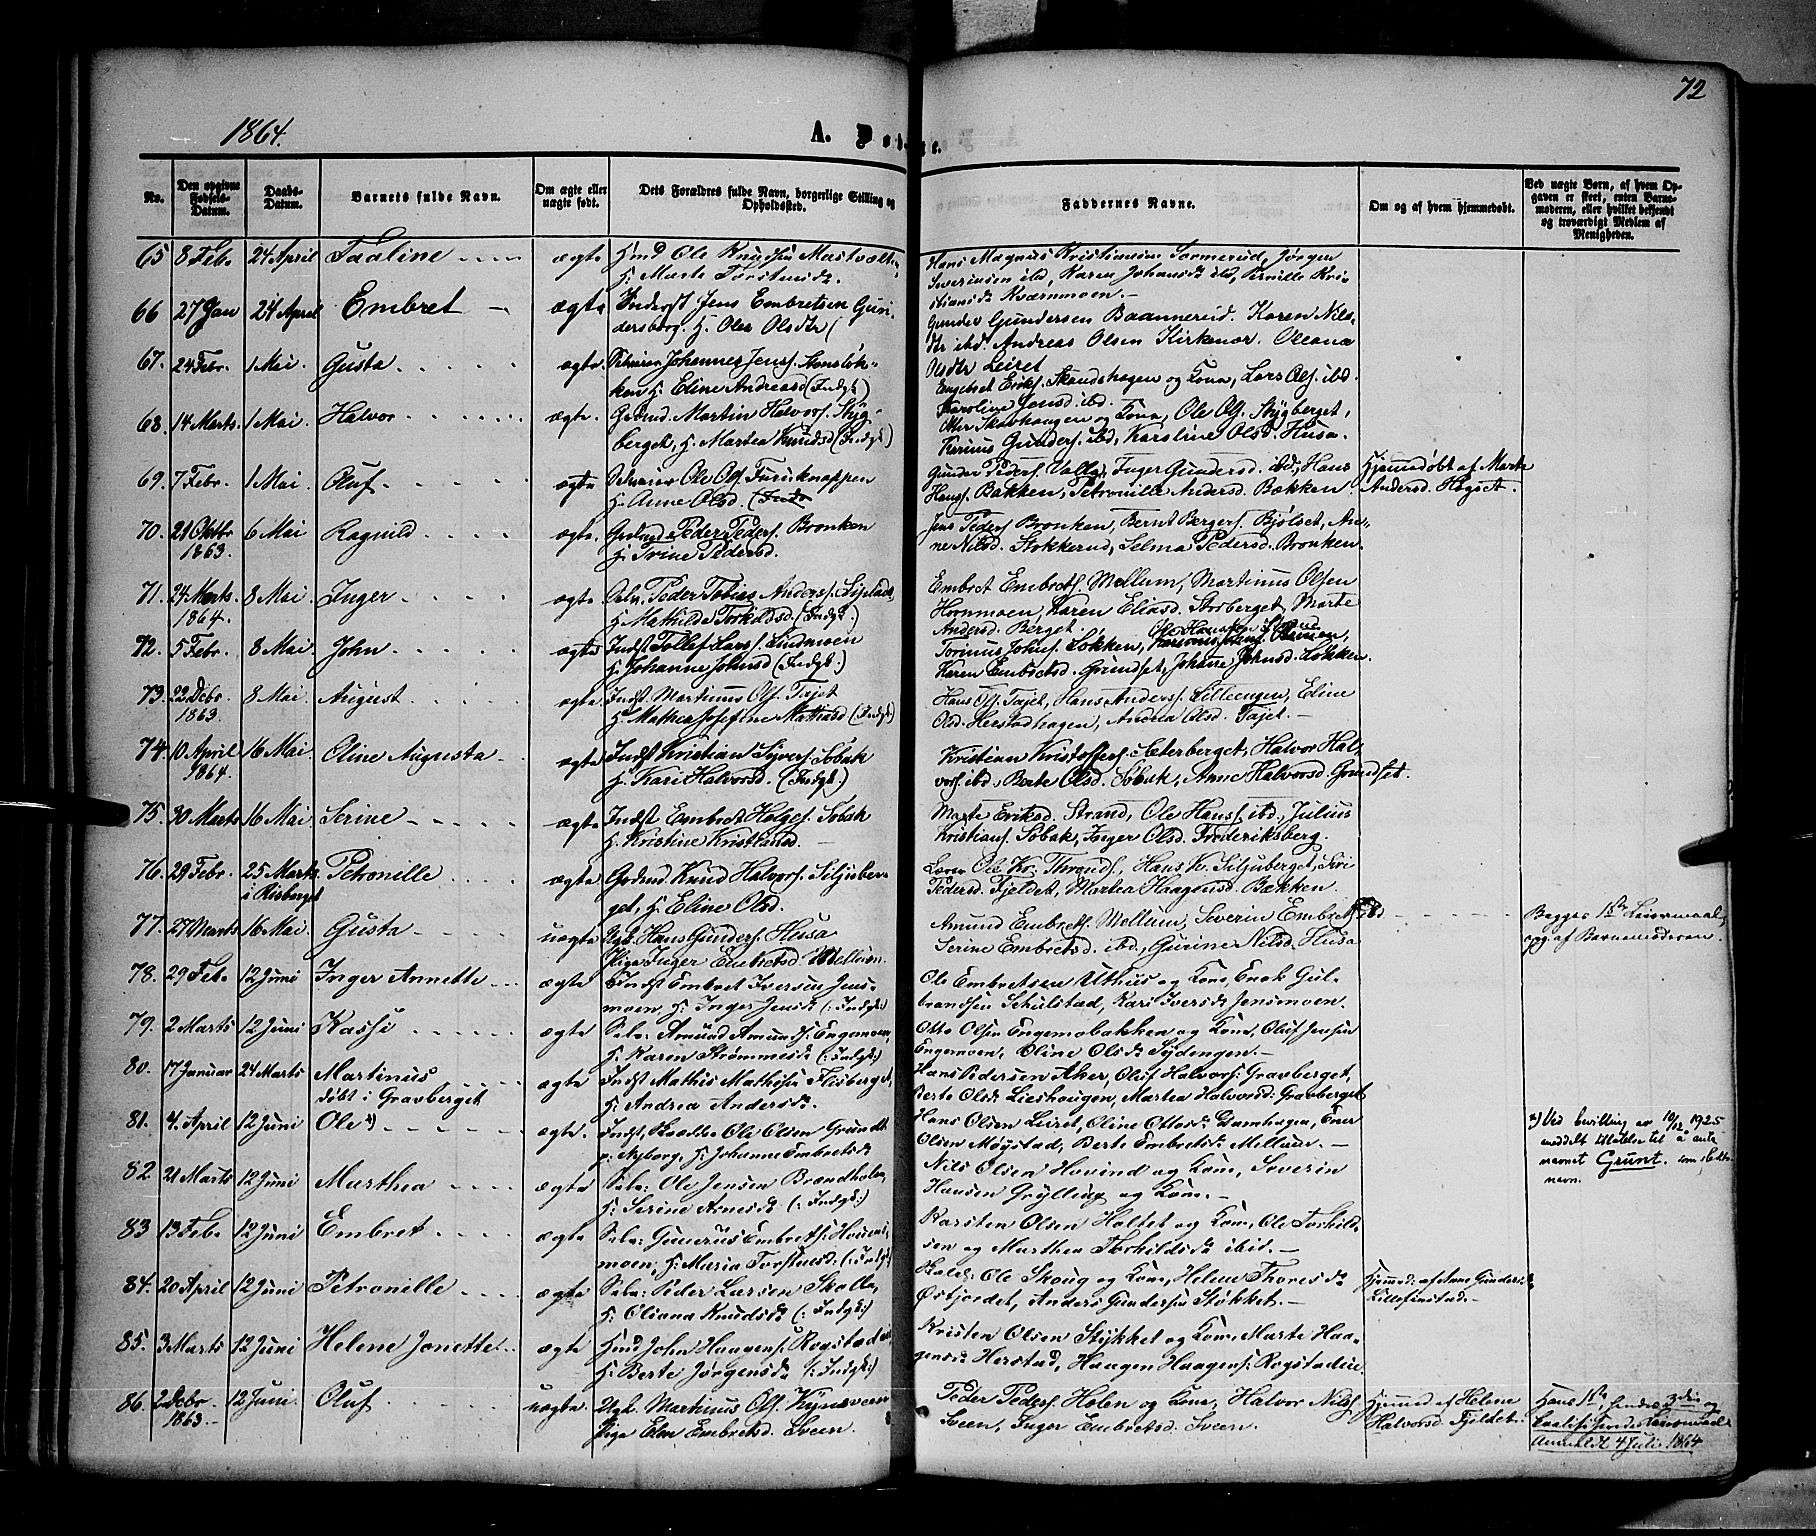 72
1864.
A. Fødte.
No.
Den opgivne Fødsels-Datum.
Daabs-Datum.
Barnets fulde Navn.
Om ægte eller uægte født.
Dets Forældres fulde Navn, borgerlige Stilling og Opholdssted.
Faddernes Navne.
Om og af hvem hjemmedøbt.
Ved uægte Børn, af hvem Opgaven er skeet, enten Barnemoderen, eller hvilket bekjendt og troværdigt Medlem af Menigheden.
65 8 Feb. 24 April Taaline ægte Hmd Ole Knudsen
H. Marte Torstensdr.
Hans Magnus Kristiansen Sormerud, Jørgen
Severinsen ibd, Karen Johansdr ibd, Pernille Kri-
stiansdr Kværnmoen.
66 27 Jan 24 April Embret ægte Inderst Jens Embretsen Gun-
dersborg. H. Olea Olsdtr
Gunder Gundersen Baannerud. Karen Nils-
dtr ibd. Andreas Olsen Kirkenær. Oleana
Olsdtr Leiret
67. 24 Febr. 1 Mai Gusta ægte Selveier Johannes Jenss.
H. Eline Andreasd (Indgt.)
Engebret Eriks. Skandshagen og Kone, Lars Ols. ibd.
Karoline Jensd. ibd.
68. 14 Marts. 1 Mai Halvor ægte. Grdmd. Martin Halvors. Styg-
berget, H. Martea Knudsd (Indgt.)
Otter Skavhaugen og Kone, Ole Ols. Stygberget,
Karinus Gunders. ibd, Karoline Olsd. Husa.
69. 7 Febr. 1 Mai Oluf ægte Selveier Ole Ols. Fureknappen
H. Anne Olsd. (Indg
Gunder Peders. Valla, Inger Gundersd. ibd, Hans
Hans. Bakken, Petronille Andersd. Bakken.
Hjemmedøbt af Marte
Andersd. Hogset.
70. 21 Oktbr 1863. 6 Mai Ragnild ægte. Grdmd Peder Peders. Bronken
H. Trine Pedersd.
Jens Peders. Bronken, Bernt Bergers. Bjølset, An-
ne Nilsd. Stokkerud, Selma Pedersd. Bronken.
71. 24 Marts. 1864. 8 Mai Inger ægte Selv. Peder Tobias Anders.
H. Mathilde Torkildsd. (Indgt.)
Embret Embrets. Mellum, Martinus Olsen
Hornmoen, Karen Eliasd. Storberget, Marte
Andersd. Berget.
72. 5 Febr. 8 Mai John ægte Indst Tollef Lars. Lindmoen
H. Johanne Johnsd (Indgt.)
Ole Hansen Strand
Torinus Johns. Løkken,
Karen Embretsd. Grundset, Johanne Johnsd. Løkken.
73. 22 Debr 1863. 8 Mai August ægte Indst Martinus Ols. Tajet
H. Mathea Josefine Mathiasd (Indgt.)
Hans Ols. Tajet, Hans Anders. Lilleengen, Eline
Olsd. Herstadhagen, Andrea Olsd. Tajet.
74. 10 April 1864. 16 Mai Oline Augusta ægte Indst Kristian Syvers. Sobak
H. Kari Halvorsd. (Indgt.)
Kristian Kristoffers. Sæterberget, Halvor Hal-
vors. ibd, Berte Olsd. Sobak, Anne Halvorsd. Grundset.
75. 30 Marts 16 Mai Serine ægte Indst Embret Helges. Sobak
H. Kristine Kristiansd.
Marte Eriksd. Strand, Ole Hans. ibd, Julius
Kristians. Sobak, Inger Olsd. Frederiksberg.
76. 29 Febr. 25 Marts i Risberget Petronille ægte Grdmd. Knud Halvors. Siljuber-
get, H. Eline Olsd.
Lærer Ole Kr. Thronds., Hans Kr. Siljuberget, Siri
Pedersd. Fjeldet, Martea Haagensd. Bakken.
77. 27 Marts 16 Mai Gusta uægte Ugk. Hans Gunders. Husa
Pige Inger Embretsd. Mellum.
Amund Embrets. Mellum, Severin Embrets. ibd
Serine Embretsd. ibd, Gurine Nilsd. Husa
Begges 1ste Leiermaal,
opg. af Barnemoderen.
78. 29 Feb. 12 Juni Inger Annette ægte Indst Embret Iversen Jens-
moen H. Inger Jensdr (: Indgt:)
Ole Embretsen Uthus og Kone, Enok Gul-
brandsen Schulstad, Kari Iversdr Jensmoen.
79. 2 Marts 12 Juni Kassi ægte Selv. Amund Amunds. Engemoen,
H. Karen Strømmesdr (: Indgt:)
Otto Olsen Engemobakken og Kone, Oluf Jensen
Engemoen, Oline Olsdr Sydengen.
80. 17 Januar 24 Marts Martinus
døbt i Gravberget ægte Indst Mathis Mathisen Flisberget,
H. Andrea Andersdr.
Hans Pedersen Aker, Oluf Halvors. Gravberget,
Berte Olsdr Lieshaugen, Martea Halvorsd: Gravberget
81. 4. April 12 Juni Ole x) ægte. Indst, Ole Olsen Grundt
p. Nyborg, H. Johanne Embretsdr
Hans Olsen Leiret, Oline Ottosdr Damhagen, Ener
Olsen Møystad, Berte Embretsdr Mellum.
x) Ved bevilling av 10/12 1925
meddelt tilladelse til å anta
navnet Grunt. som slekts-
navn.
82 21 Marts 12 Juni Marthea ægte Selv: Ole Jensen Brændholen,
H. Serine Arnesdr (: Indgt:)
Nils Olsen Hovind og Kone, Severin
Hansen Grylling og Kone.
83 13 Feb. 12 Juni Embret ægte Selv: Gunerus Embrets:
moen, H. Maria Torstensd. (: Indgt:)
Karsten Olsen Holtet og Kone, Ole Torkild-
sen og Marthea Thorkildsdr ibid.
84. 20 April 12 Juni Petronille ægte Selv: Peder Larsen Skolla,
H. Oliana Knudsdr (: Indgt:)
Ole Skoug og Kone, Helene Thoresdr
Østjordet, Anders Gundersen Støkket.
Hjemmed: af Anne Gundersdr
Lillefinstad.
85. 3 Marts 12 Juni Helene Jonette ægte Hmd John Haagens: Rogstad
H. Berte Jørgensdr (: Indgt:)
Kristen Olsen Stykket og Kone, Marte Haa-
gensdr Herstad, Haagen Haagens: Rogstadeie
86. 2 Debr 1863. 12 Juni Oluf uægte Ugk. Martinus Ols. Kynsveen
Pige Elen Embretsd. Sveen.
Peder Peders. Holen og Kone, Halvor Nils.
Sveen, Inger Embretsd. Sveen.
Hjemmd af Helene
Halvorsd. Fjeldet.
Hans 1ste, hendes 3die og
kvalificerede Leiermaal.
Anmeldt 4 Juli 1864